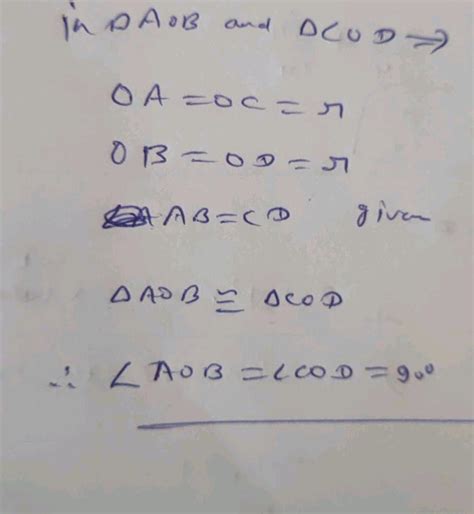 in ΔAOB and ΔCOD ⇒
OA = OC = r
OB = OD = r
AB = CD given
ΔAOB ≅ ΔCOD
∴ ∠AOB = ∠COD = 90°